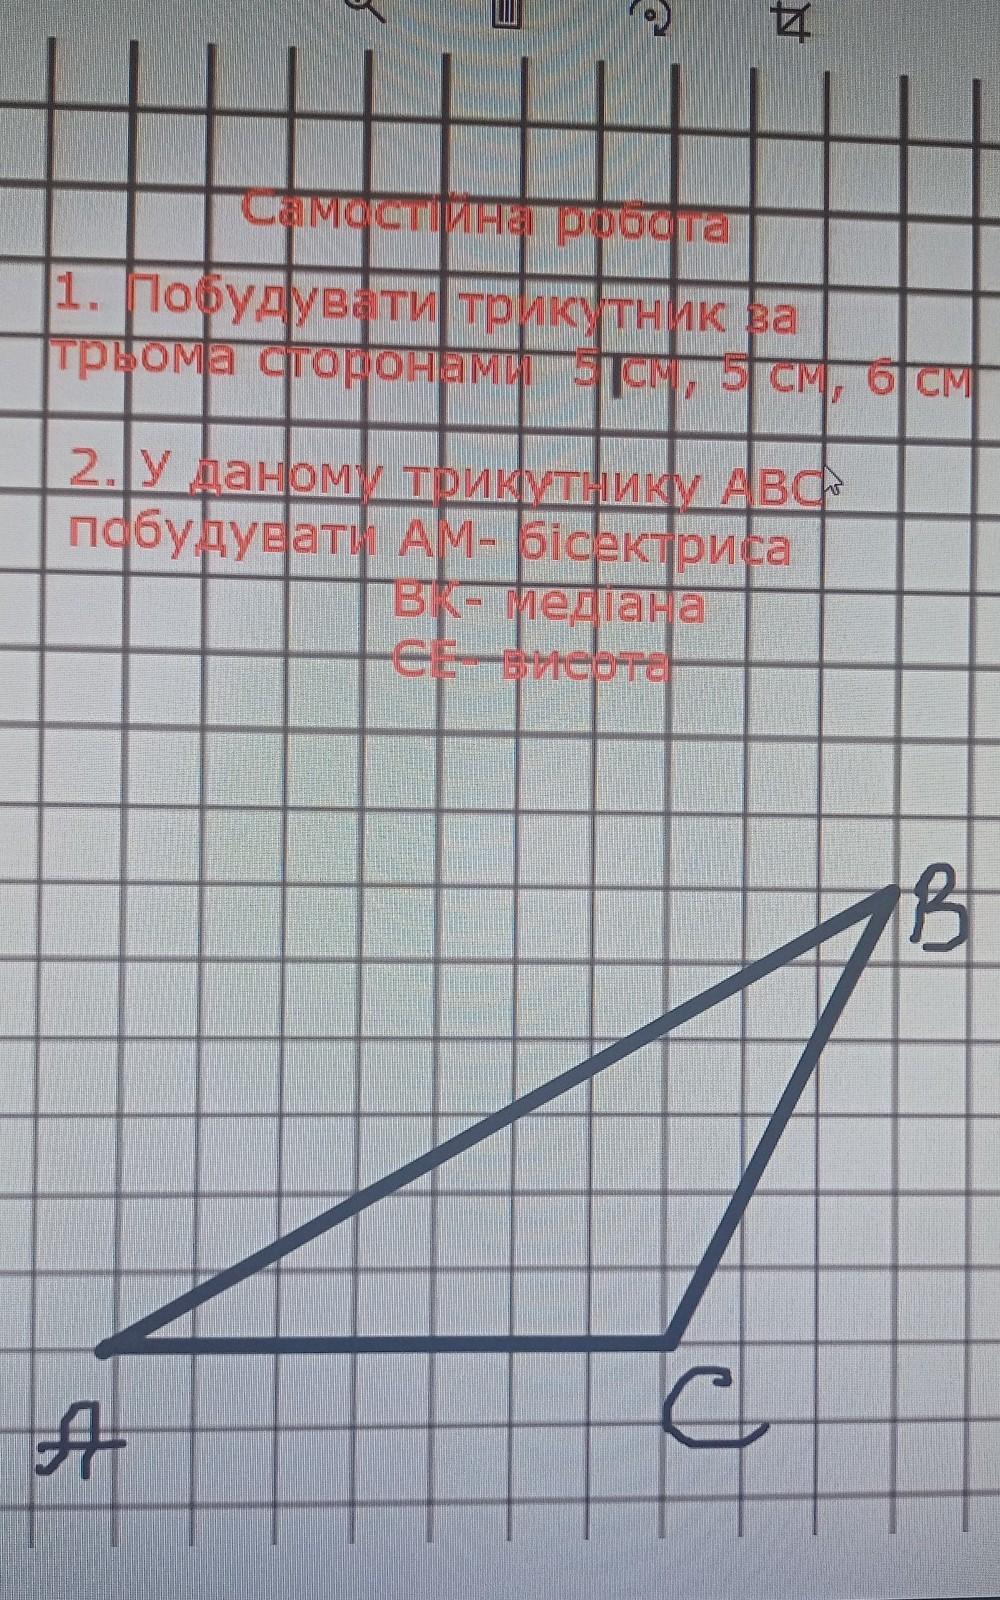 Самостійна робота
1. Побудувати трикутник за
трьома сторонами 5 см, 5 см, 6 см
2. У даному трикутнику АВС
побудувати АМ- бісектриса
ВК- медіана
СЕ- висота
В
А
С